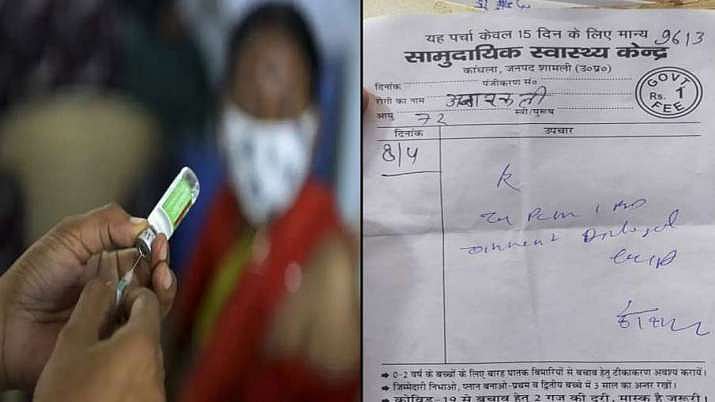 यह पर्चा केवल 15 दिन के लिए मान्य 9613
सामुदायिक स्वास्थ्य केन्द्र
कांधला, जनपद शामली (उ०प्र०)
दिनांक पंजीकरण सं०
रोगी का नाम अनारकली
आयु 72 स्त्री/पुरूष
GOVT
Rs. 1
FEE
दिनांक उपचार
8/4
➡ 0-2 वर्ष के बच्चों के लिए बारह घातक बिमारियों से बचाव हेतु टीकाकरण अवश्य करायें।
➡ जिम्मेदारी निभाओ, प्लान बनाओ-प्रथम व द्वितीय बच्चे में 3 साल का अन्तर रखें।
➡ कोविड-19 से बचाव हेतु 2 गज की दूरी, मास्क है जरूरी।